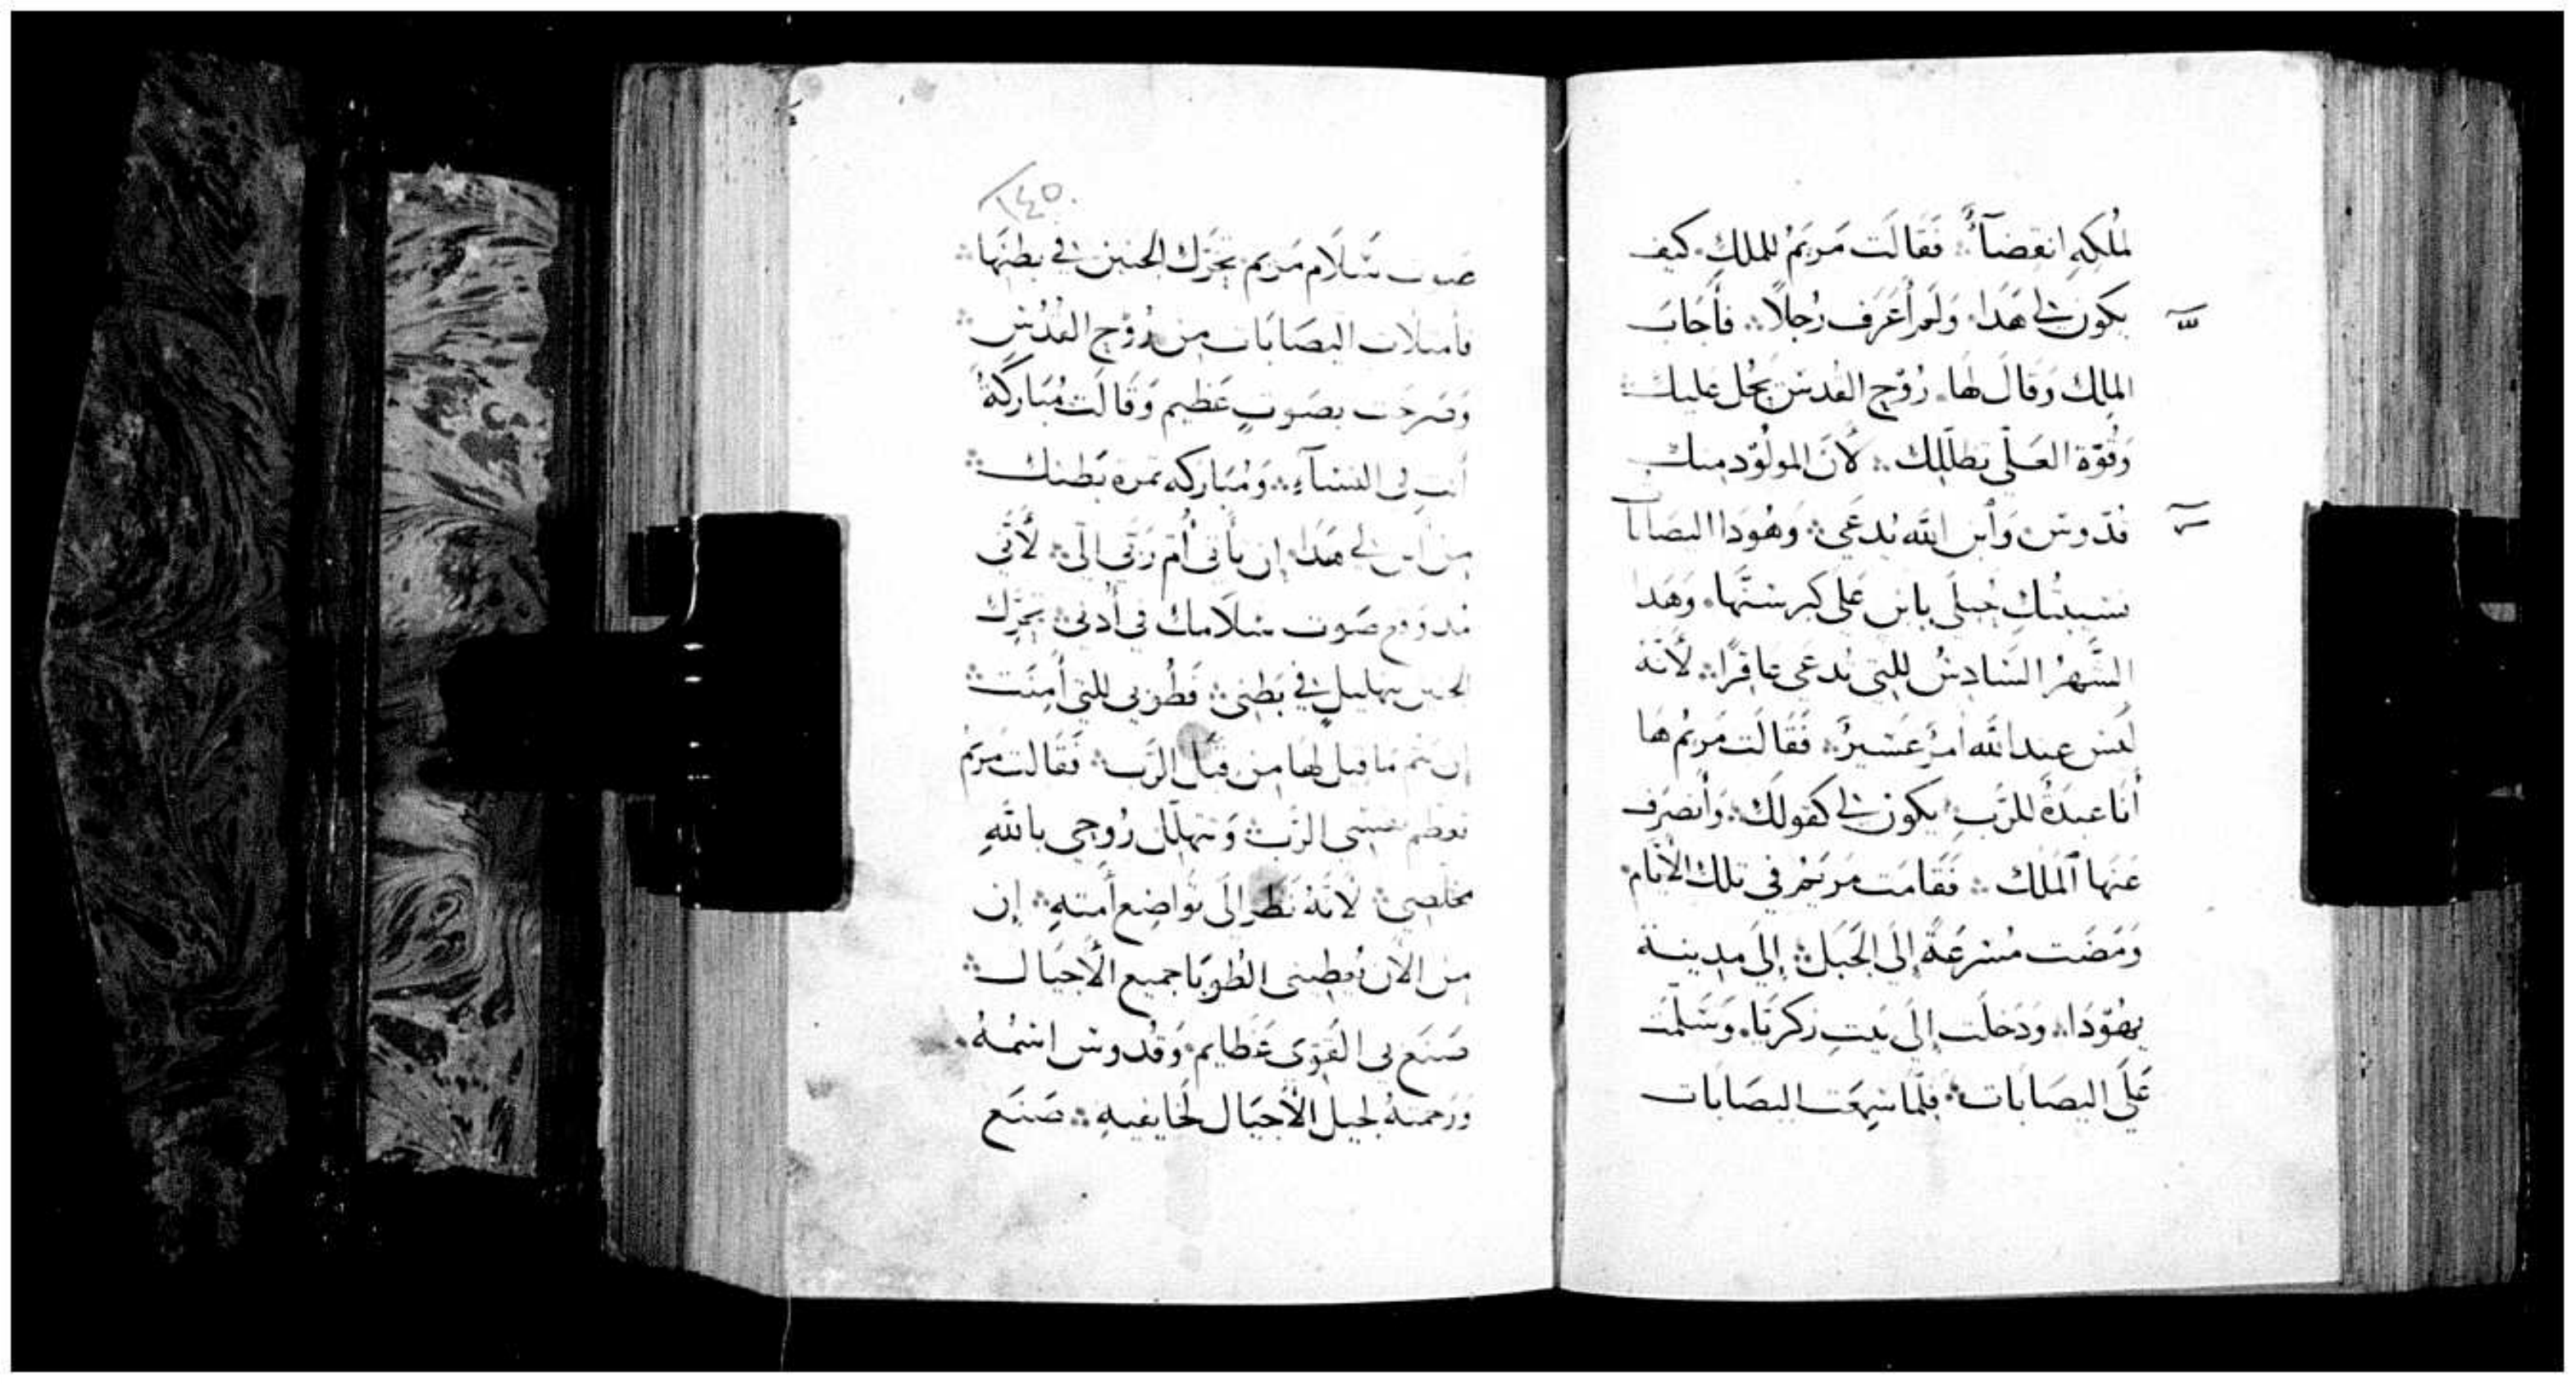 لمُلكِهِ انقِضآءٌ ፨ فَقَالَت مَريَمُ للملَاكِ كيف
يكون لي هَذَا وَلَم أَعرَف رُجلاً ፨ فأَجَابَ
الملاك وَقالَ لهَا رُوْح القدس يحُل عَليك
وَقُوّة العَلّي تظللِك ፨ لأَنَ المولُوْد مِنك
قدّوس وَابن الله يُدعَى ፨ وَهُوَدَا اليصَابَات
نسيبتُك حُبلَى بابن عَلى كبر سنّهَا وَهَدَا
الشَّهرُ السَّادِسُ للتِي تُدعَى عَاقِرًا ፨ لأَنّهُ
لَيسَ عِند الله امرٌ عَسيرٌ ፨ فَقَالَت مَريَمُ هَا
أَنَا عَبدَةٌ للرَّبِ يكون لي كقولك ፨ وَأنصَرَف
عَنهَا المَلَاك ፨ فَقَامَت مَريَمُ في تلك الأَيَّام
وَمَضَت مُسرَعَةً إِلَى الجَبَل ፨ إِلَى مدِينة
يَهُوْدَا ፨ وَدَخلَت إِلَى بَيتِ زكَريَّا وَسَلَّمَت
عَلَى اليصَابَات ፨ فلَمَّا سَمِعَت اليصَابَات
١٤٥
صوت سَلَام مَريَم تحَرَّك الجنين في بَطنِهَا ፨
فأمتلات اليصَابَات مِن رُوْح القُدُسِ ፨
وَصَرخَت بصَوتٍ عَظيم وَقَالَت مُبَاركَةُ
أنتِ في النسَآءِ ፨ وَمُبَاركَه تمرة بَطنك ፨
مِن أين لي هَدَا إن يأتي أُم رَبّي اليّ ፨ لأَنّي
مُند وقع صَوت سَلَامك في أُدني ፨ تحرَّك
الجنين بتهليلٍ في بَطني ፨ فَطُوبى للتي أَمنَت ፨
إن يَتم مَا قيل لهَا من قِبَل الرَّب ፨ فَقَالت مَريَمُ
تعظم نفسِي الرَّب ፨ وَتتهلّل رُوحي باللهِ
مخلّصي ፨ لأَنّهُ نَظر إِلَى تَواضِع أَمتهِ ፨ إن
مِن الأَن تُعطيني الطُوبَا جميع الأَجيَال ፨
صَنع بي القَوِى عَظايم وَقُدوس اسمُهُ
وَرَحمتهُ لجيل الأَجيَال لخَايفيهِ ፨ صَنَع